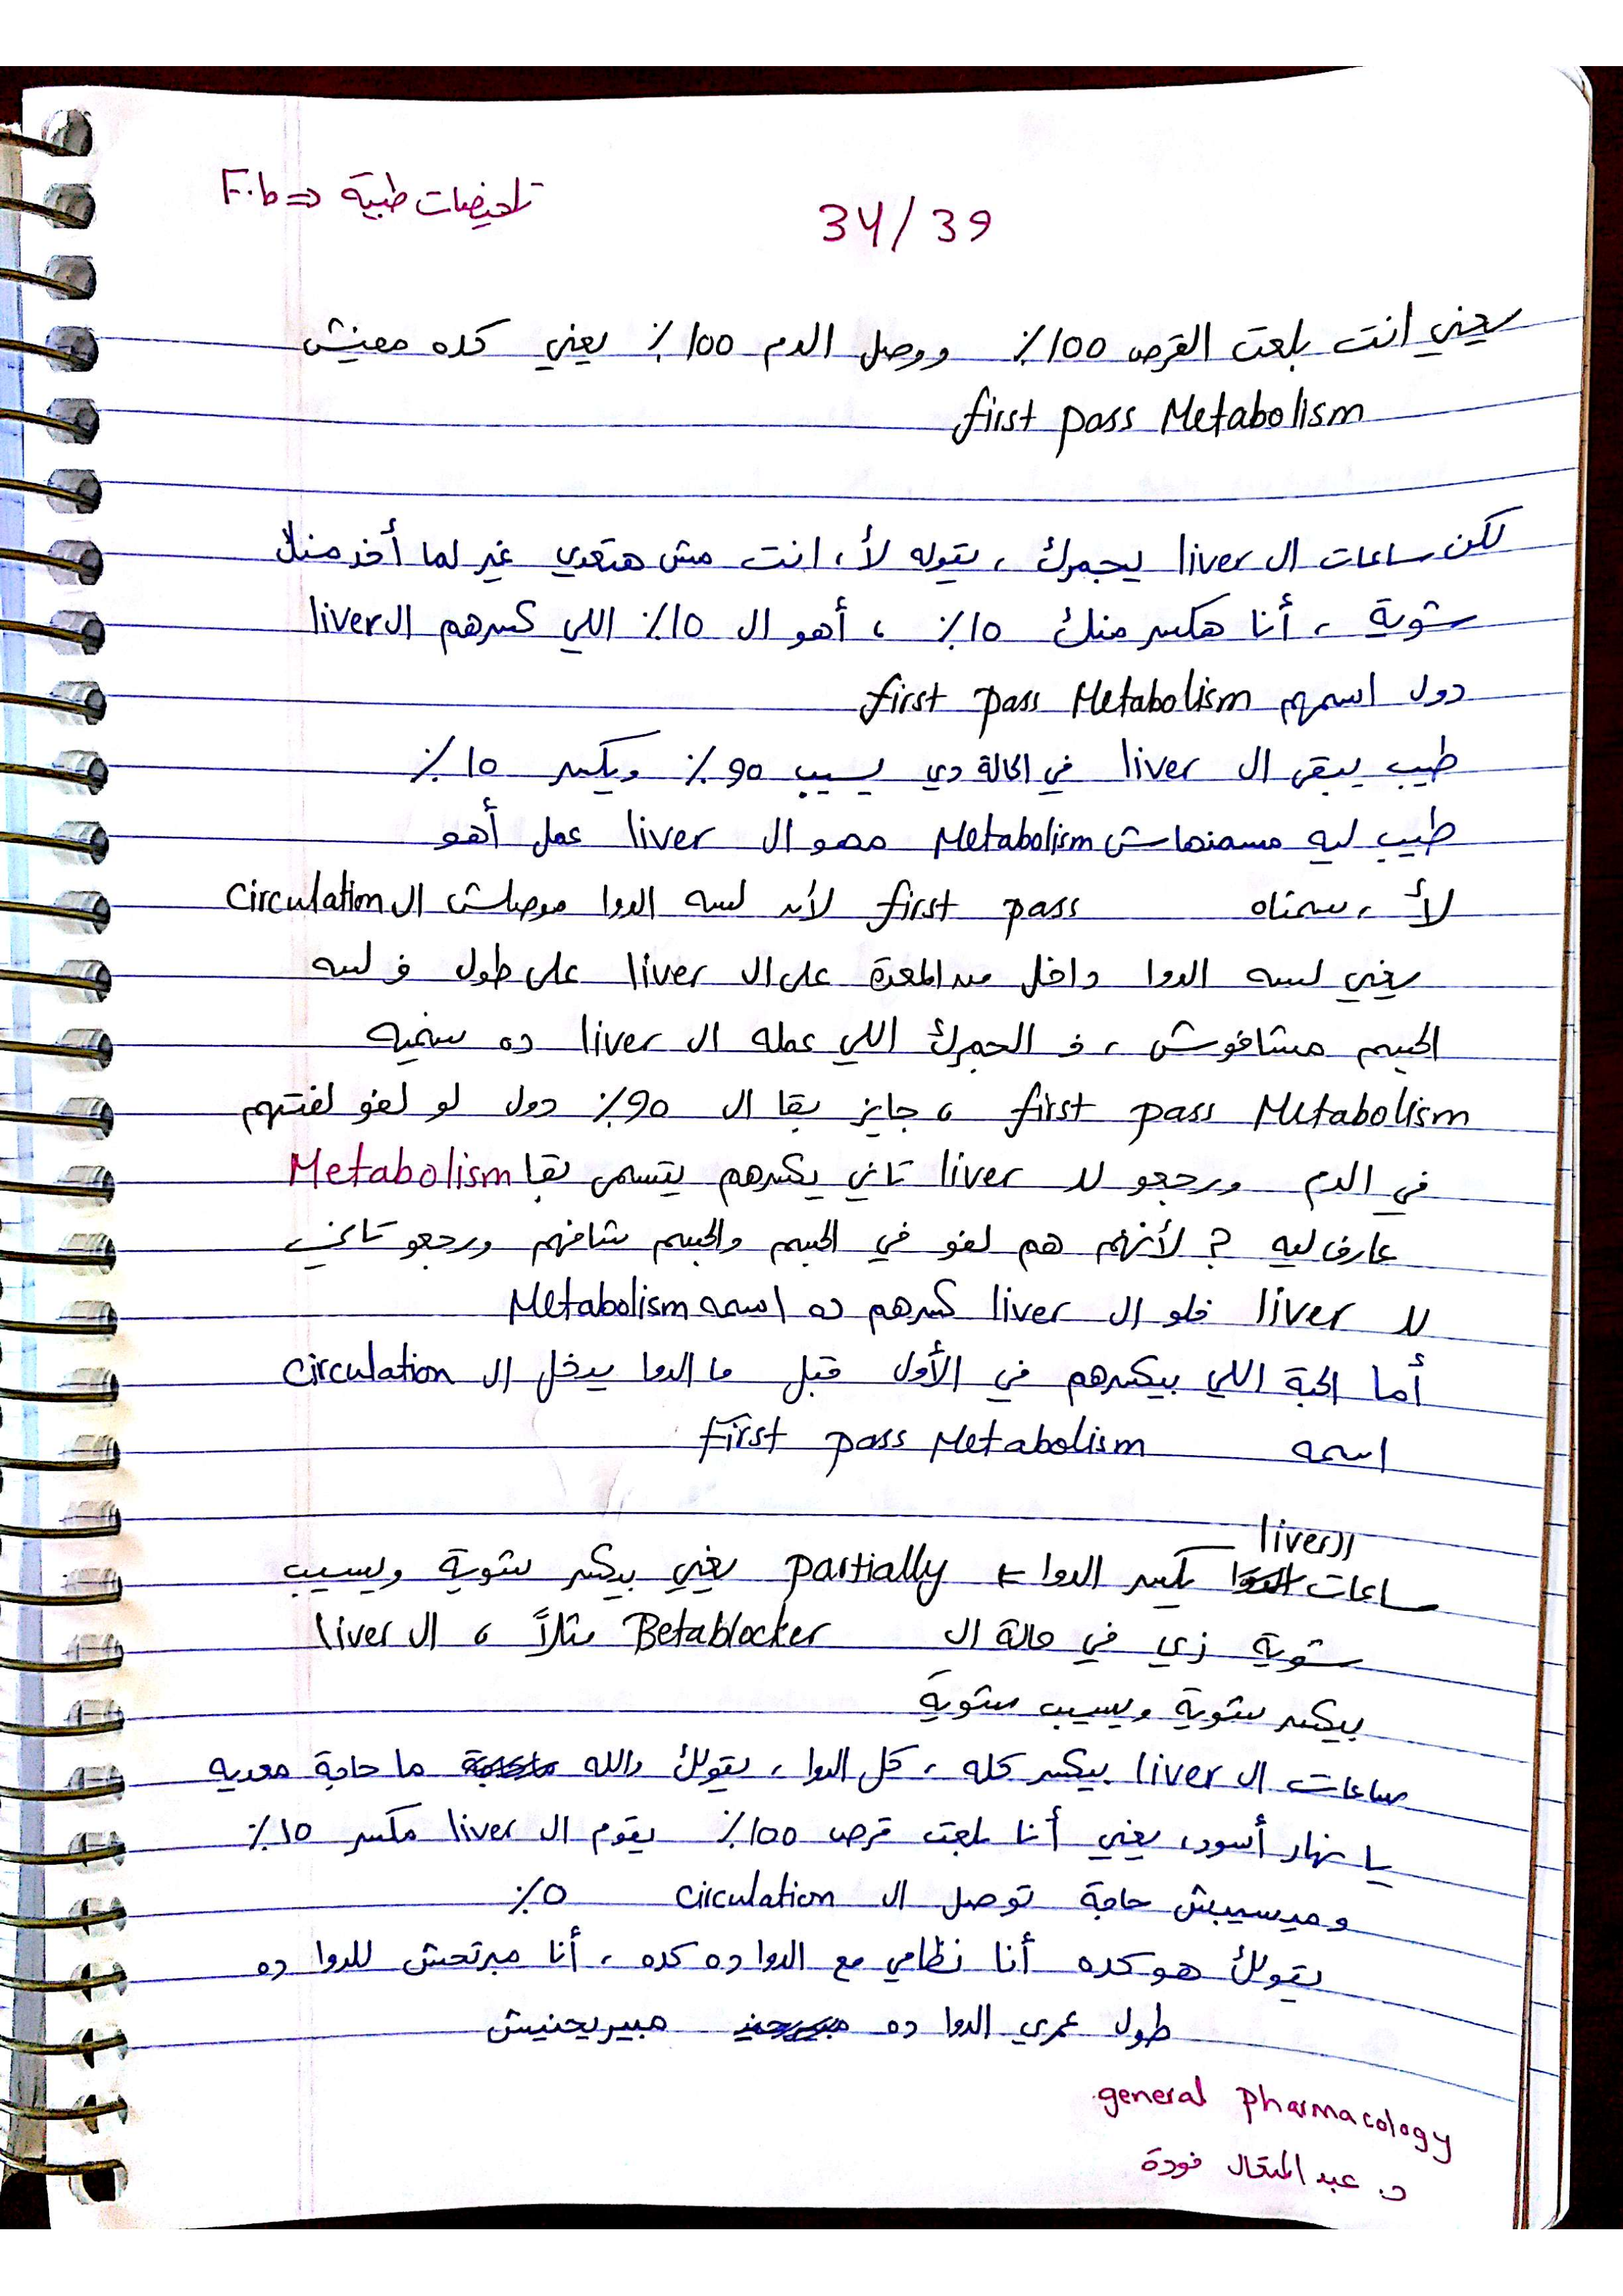 F.b ⇒ تلخيصات طبية
34/39
يعني انت بلعت القرص 100٪ ووصل الدم 100٪ يعني كده مفيش
first pass Metabolism
لكن ساعات ال liver يجمرك ، يقوله لأ ، انت مش هتعدي غير لما أخد منك
شوية ، أنا هكسر منك 10٪ ، أهو ال 10٪ اللي كسرهم ال liver
دول اسمهم first pass Metabolism
طيب يبقى ال liver في الحالة دي يسيب 90٪ ويكسر 10٪
طيب ليه مسمنهاش Metabolism مهو ال liver عمل أهو
لأ ، سمناه first pass لأن لسه الدوا موصلش ال circulation
يعني لسه الدوا داخل من المعدة على ال liver على طول ف لسه
الجسم مشافوش ، ف الجمرك اللي عمله ال liver ده سنميه
first pass Metabolism ، جايز بقا ال 90٪ دول لو لفو لفتهم
في الدم ورجعو لل liver تاني يكسرهم يتسمى بقا Metabolism
عارف ليه ؟ لأنهم هم لفو في الجسم والجسم شافهم ورجعو تاني
لل liver فلو ال liver كسرهم ده اسمه Metabolism
أما الحبة اللي بيكسرهم في الأول قبل ما الدوا يدخل ال circulation
اسمه first pass Metabolism
ال liver
ساعات يكسر الدوا partially يعني بيكسر شوية ويسيب
شوية زي في حالة ال Betablocker مثلاً ، ال liver
بيكسر شوية ويسيب شوية
ساعات ال liver بيكسر كله ، كل الدوا ، يقولك والله ما حاجة معديه
يا نهار أسود ، يعني أنا بلعت قرص 100٪ يقوم ال liver مكسر 10٪
وميسيبش حاجة توصل ال circulation 0٪
يقولك هو كده أنا نظامي مع الدوا ده كده ، أنا مبرتحش للدوا ده
طول عمري الدوا ده مبيريحنيش
general pharmacology
د. عبد المتعال فودة